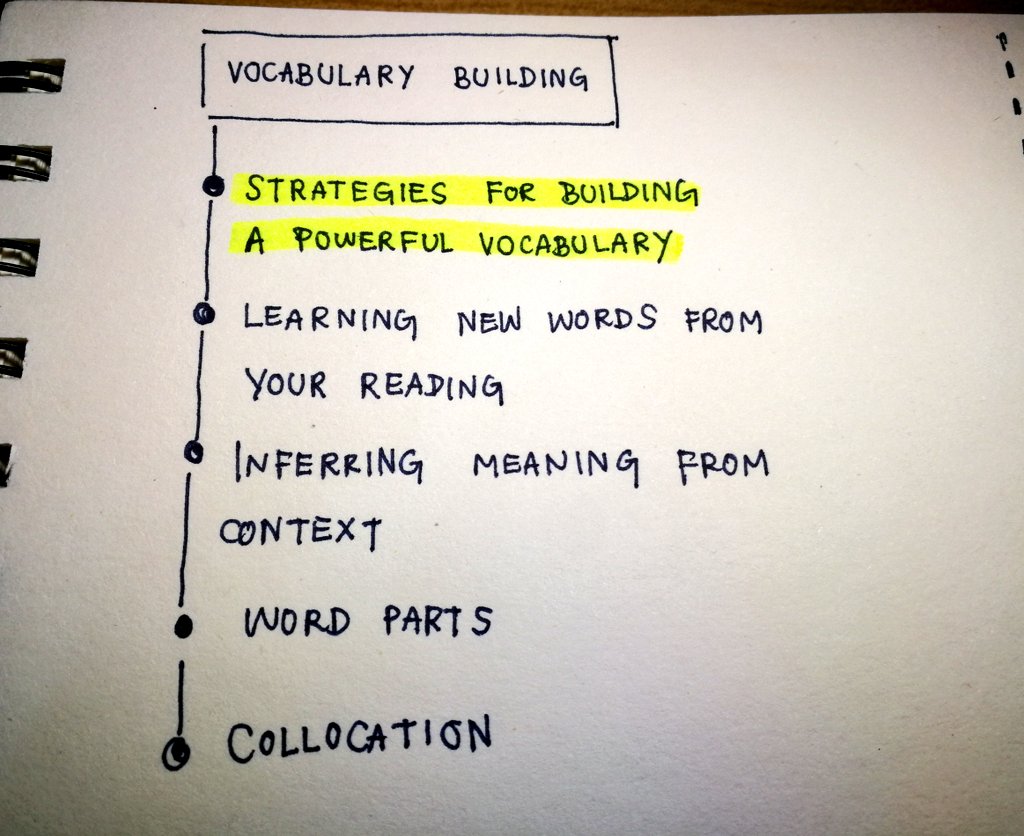 VOCABULARY BUILDING
STRATEGIES FOR BUILDING
A POWERFUL VOCABULARY
LEARNING NEW WORDS FROM
YOUR READING
INFERRING MEANING FROM
CONTEXT
WORD PARTS
COLLOCATION